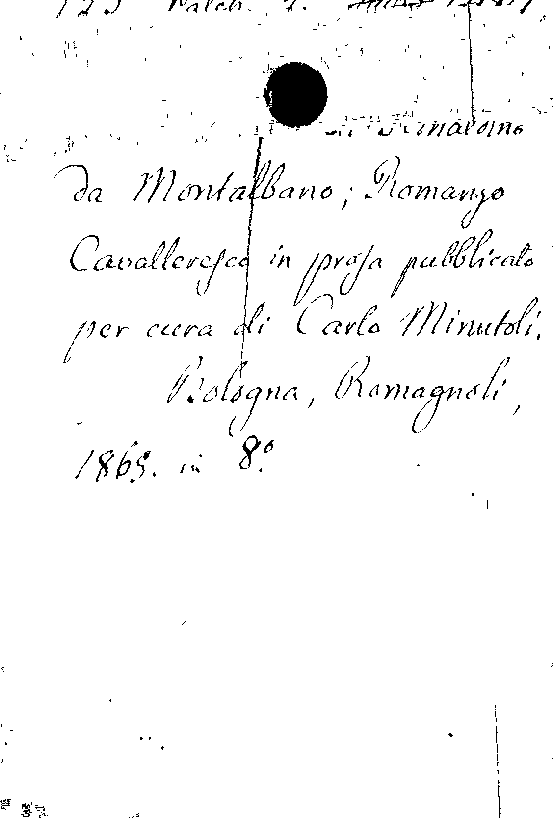 Rinaldino
da Montalbano; Romanzo
Cavalleresco in prosa pubblicato
per cura di Carlo Minutoli.
Bologna, Romagnoli,
1865. in 8º